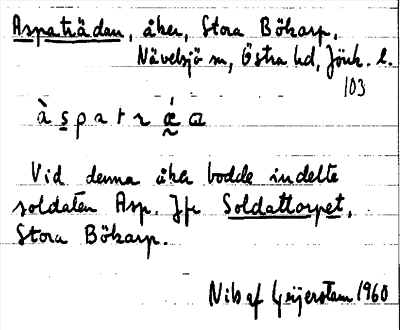 Aspaträdan, åker, Stora Bökarp,
Nävelsjö sn, Östra hd, Jönk. l.
103
à s p a t r ǽ a
Vid denna åker bodde indelte
soldaten Asp. Jfr Soldattorpet,
Stora Bökarp.
Nils af Geijerstam 1960